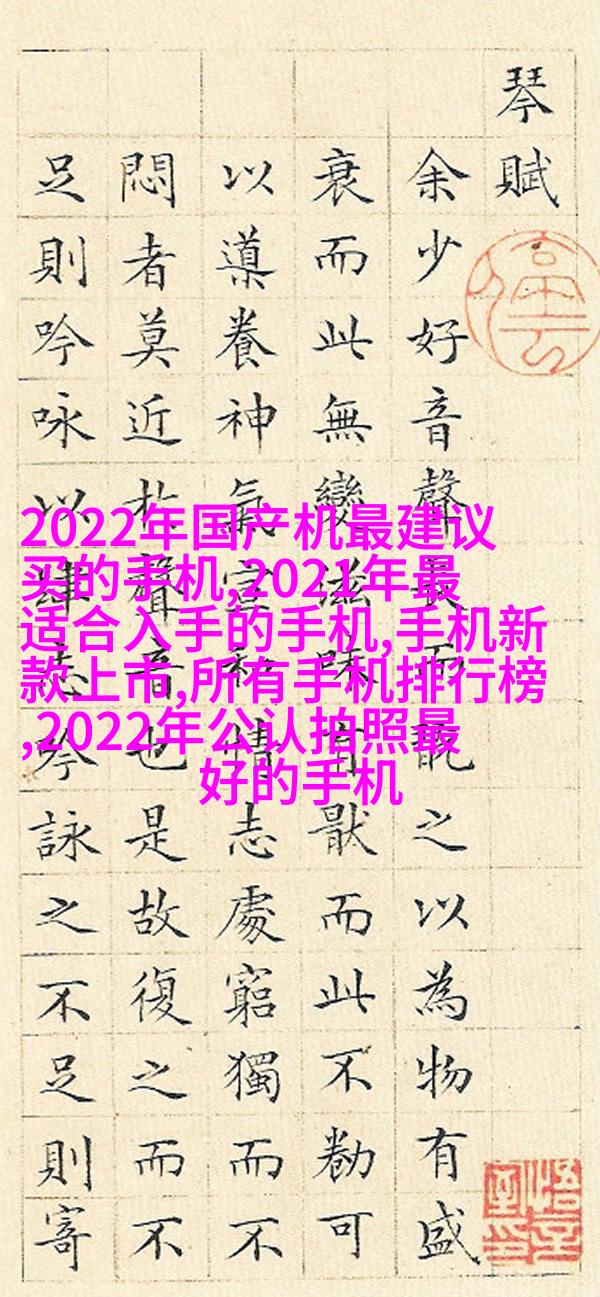 琴賦
余少好音聲長而翫之以為物有盛
衰而此無變滋味有猒而此不勌可
以導養神氣宣和情志處窮獨而不
悶者莫近扵聲音也是故復之而不
足則吟咏以肆志吟詠之不足則寄
2022年国产机最建议
买的手机,2021年最
适合入手的手机,手机新
款上市,所有手机排行榜
,2022年公认拍照最
好的手机